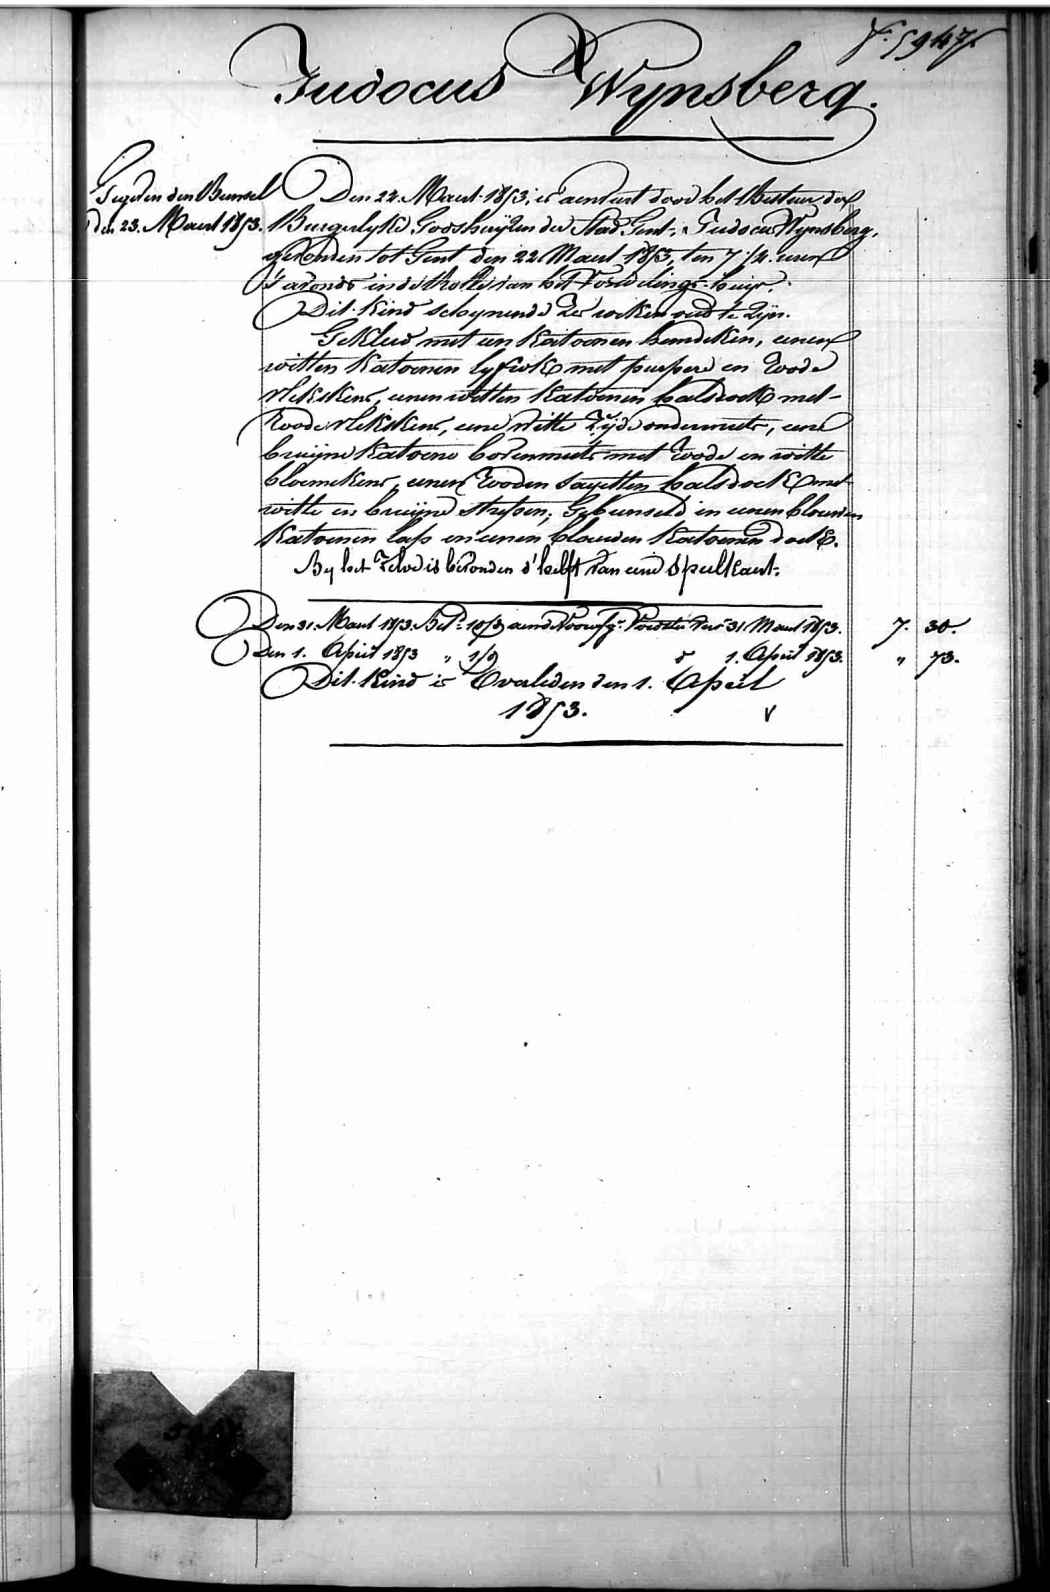 N.° 5947.
Judocus Wynsberg.
Gegeven den Bunsel
den 23. Maert 1853.
Den 22. Maert 1853, is aenveert door het Bestuer der
Burgerlyke Godshuyzen der Stad Gent, Judocus Wynsberg,
gevonden tot Gent den 22 Maert 1853, ten 7 1/2 uren
's avonds in de Rolle van het Vondelings-huys.
Dit kind schynende zes weken oud te zyn.
Gekleed met een katoenen hemdeken, eenen
witten katoenen lyfrok met purpere en roode
vlekskens, eenen witten katoenen halsdoek met
roode vlekskens, eene witte zyde ondermuts, eene
bruyne katoene bovenmuts met roode en witte
bloemekens, eenen rooden sayetten halsdoek met
witte en bruyne strepen, Gebunseld in eenen blauwen
katoenen lap en eenen blauwen katoenen doek.
By het zelve is bevonden d'helft van eene Speelkaert.
Den 31. Maert 1853. 10/9 aen de Voorzg. Voedster per 31. Maert 1853. 7. 30.
Den 1. April 1853 " 1/9 d° 1. April 1853. " 73.
Dit Kind is Overleden den 1. April
1853.